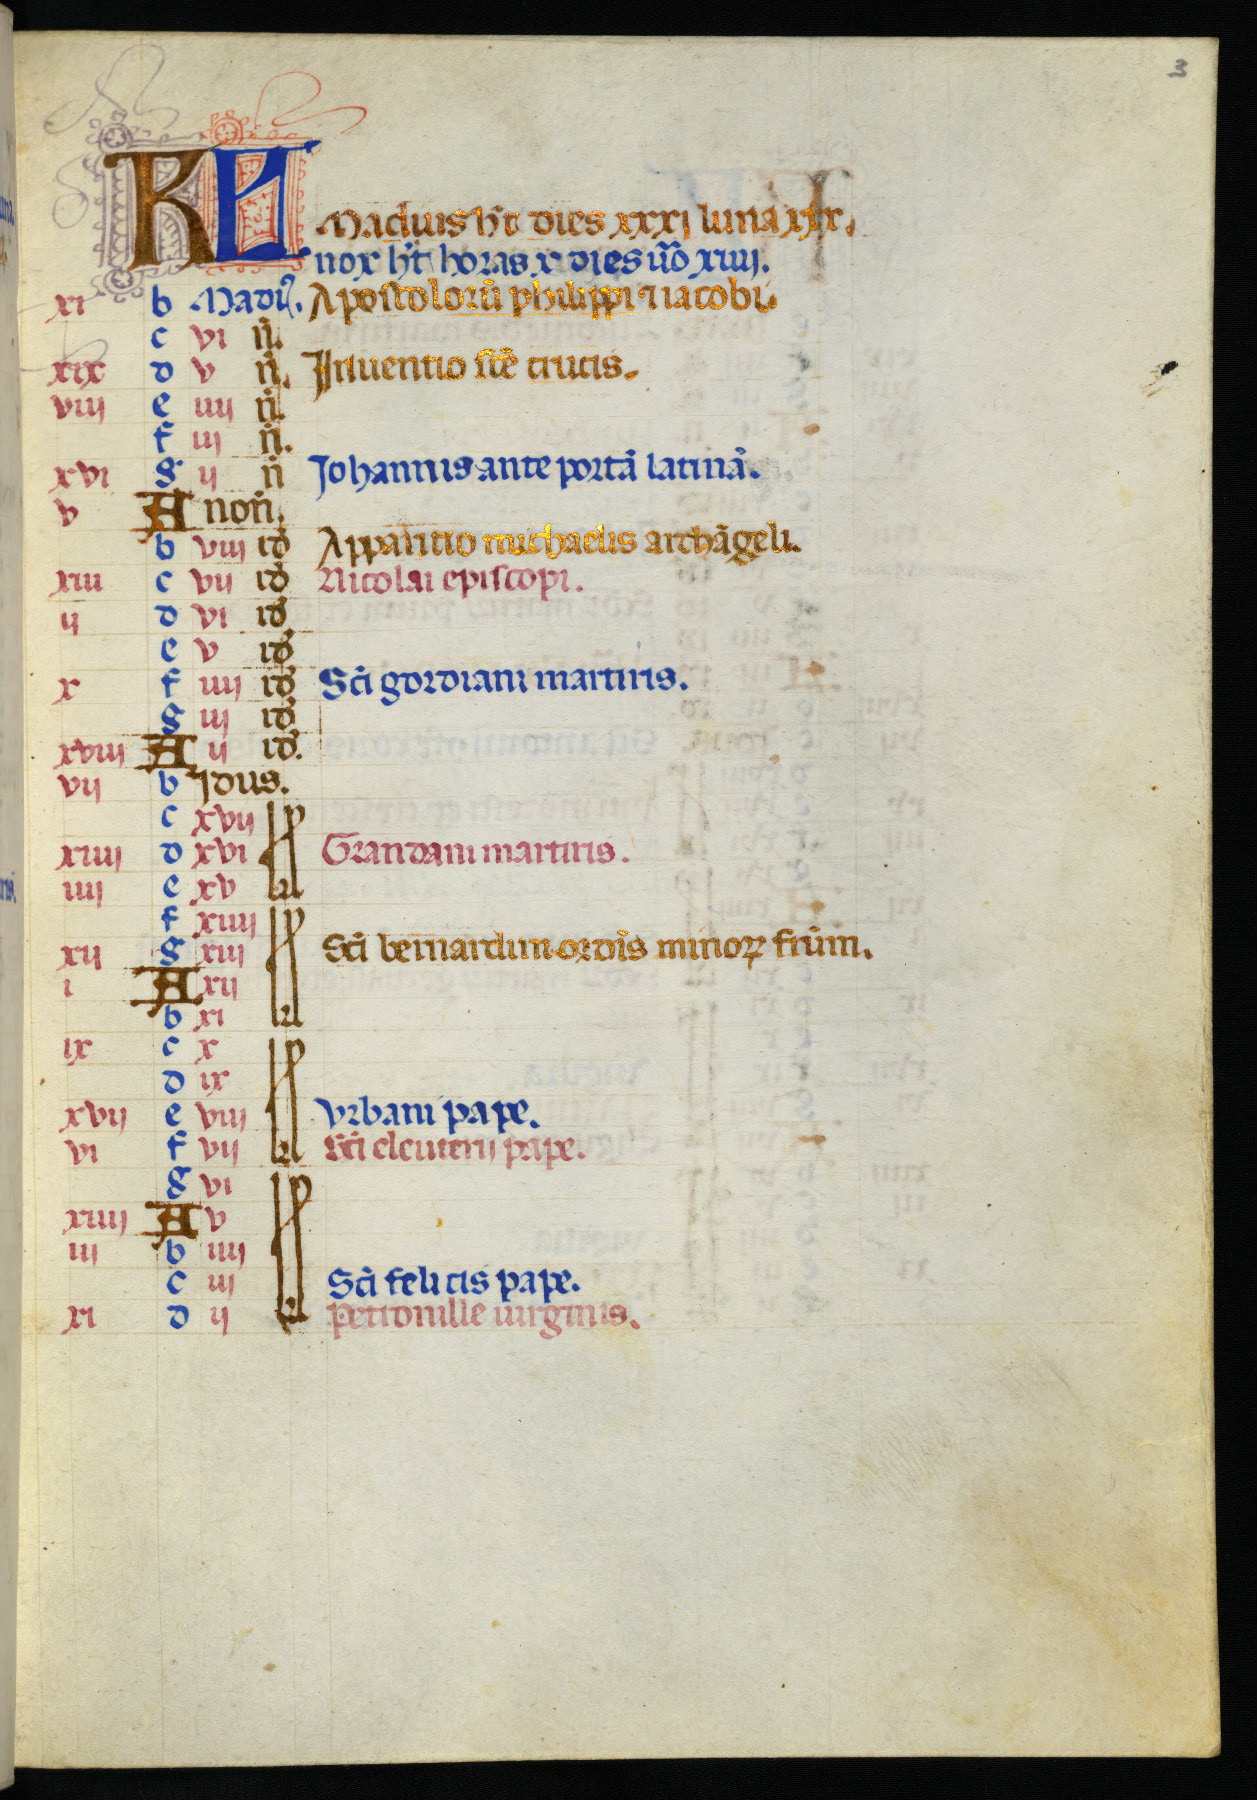 3
KL Madius h't dies xxxj luna xxx.
nox h't horas x dies ūo xiiij.
xi b Madi9. Apostolorū philippi ⁊ iacobi.
c vi n̄.
xix d v n̄. Inuentio scē crucis.
viij e iiij n̄.
f iij n̄.
xvi g ij n̄ Johannis ante portā latinā.
v A non̄.
b viij id' Apparitio michaelis archāgeli.
xiij c vij id' Nicolai episcopi.
ij d vi id'
e v id'
x f iiij id' Scī gordiani martiris.
g iij id'
xviij A ij id'.
vij b Idus.
c xvij
xiiij d xvi Grandani martiris.
iiij e xv kl
f xiiij
xij g xiij Scī bernardini ordīs minoꝝ frūm.
i A xij
b xi kl
ix c x
d ix
xvij e viij Vrbani pape.
vi f vij kl Scī eleuterij pape.
g vi
xiiij A v
iij b iiij
c iij Scī felicis pape.
xi d ij kl Petronille uirginis.